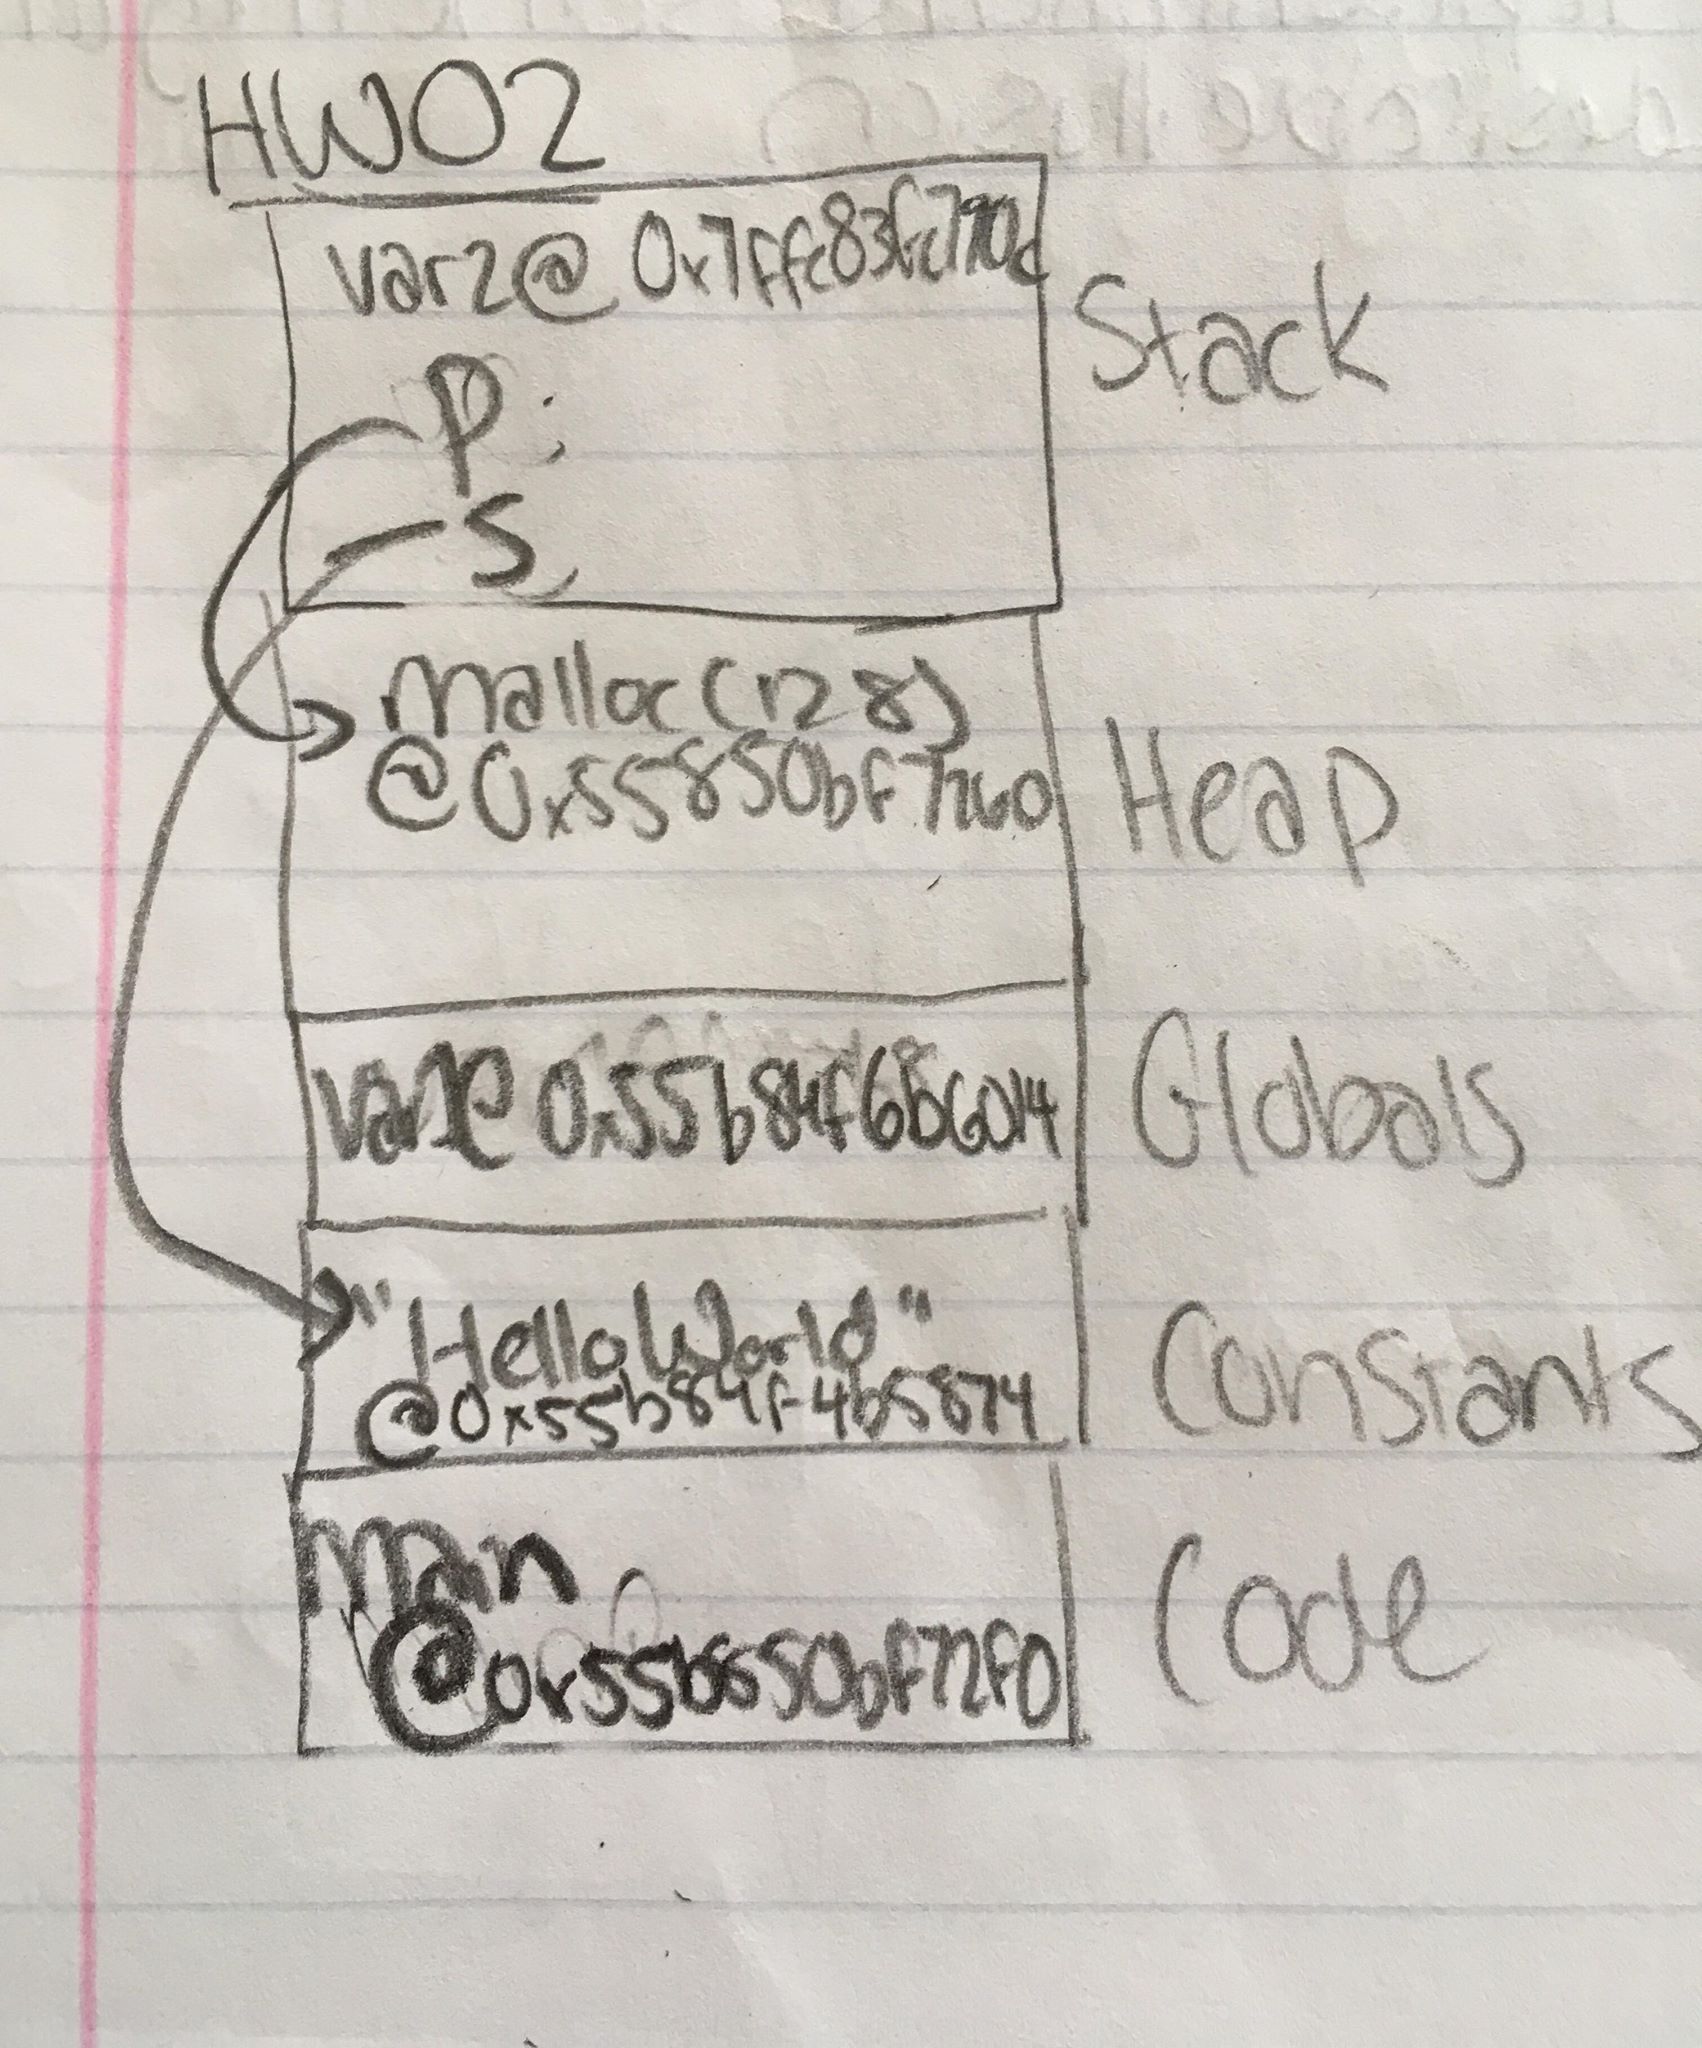 HW02
var2@ 0x7ffc83fc790c
Stack
p:
s
malloc(128)
@0x55850bf7260
Heap
0x55b84f6b6014
Globals
"Hello World"
@0x55b84f4b5874
Constants
main
Code